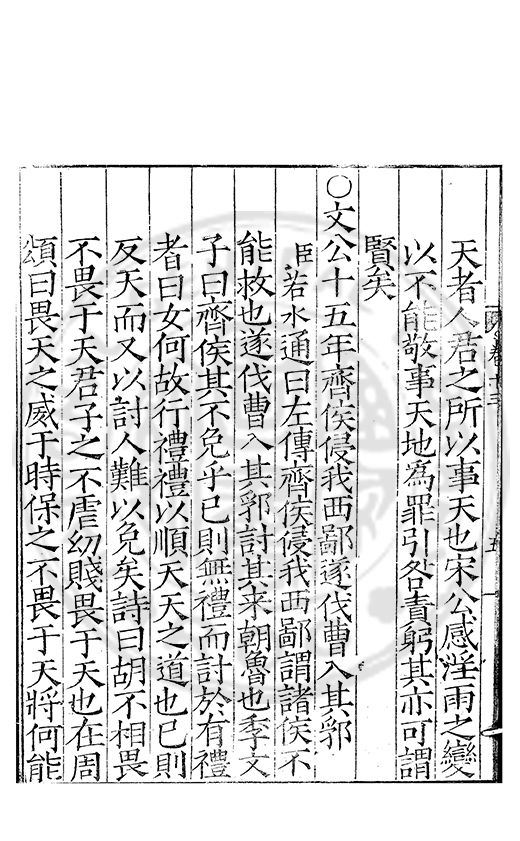 天者人君之所以事天也宋公感淫雨之變
以不能敬事天地為罪引咎責躬其亦可謂
賢矣
○文公十五年齊侯侵我西鄙遂伐曹入其郛
臣若水通曰左傳齊侯侵我西鄙謂諸侯不
能救也遂伐曹入其郛討其来朝魯也季文
子曰齊侯其不免乎已則無禮而討於有禮
者曰女何故行禮禮以順天天之道也已則
反天而又以討人難以免矣詩曰胡不相畏
不畏于天君子之不虐幼賤畏于天也在周
頌曰畏天之威于時保之不畏于天將何能